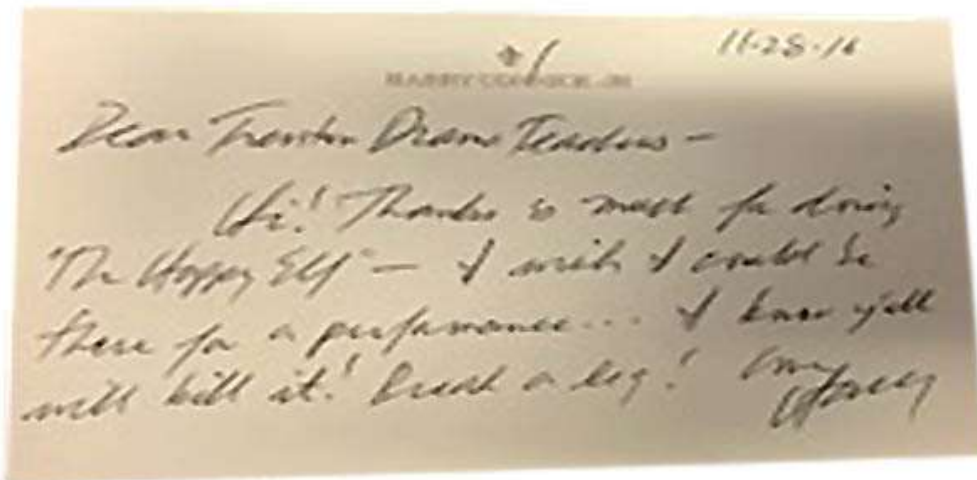 11-28-16
HARRY CONNICK, JR
Dear Trenton Drama Teachers -
Hi! Thanks so much for doing
"The Happy Elf" - I wish I could be
there for a performance... I know y'all
will kill it! Break a leg! Love
Harry